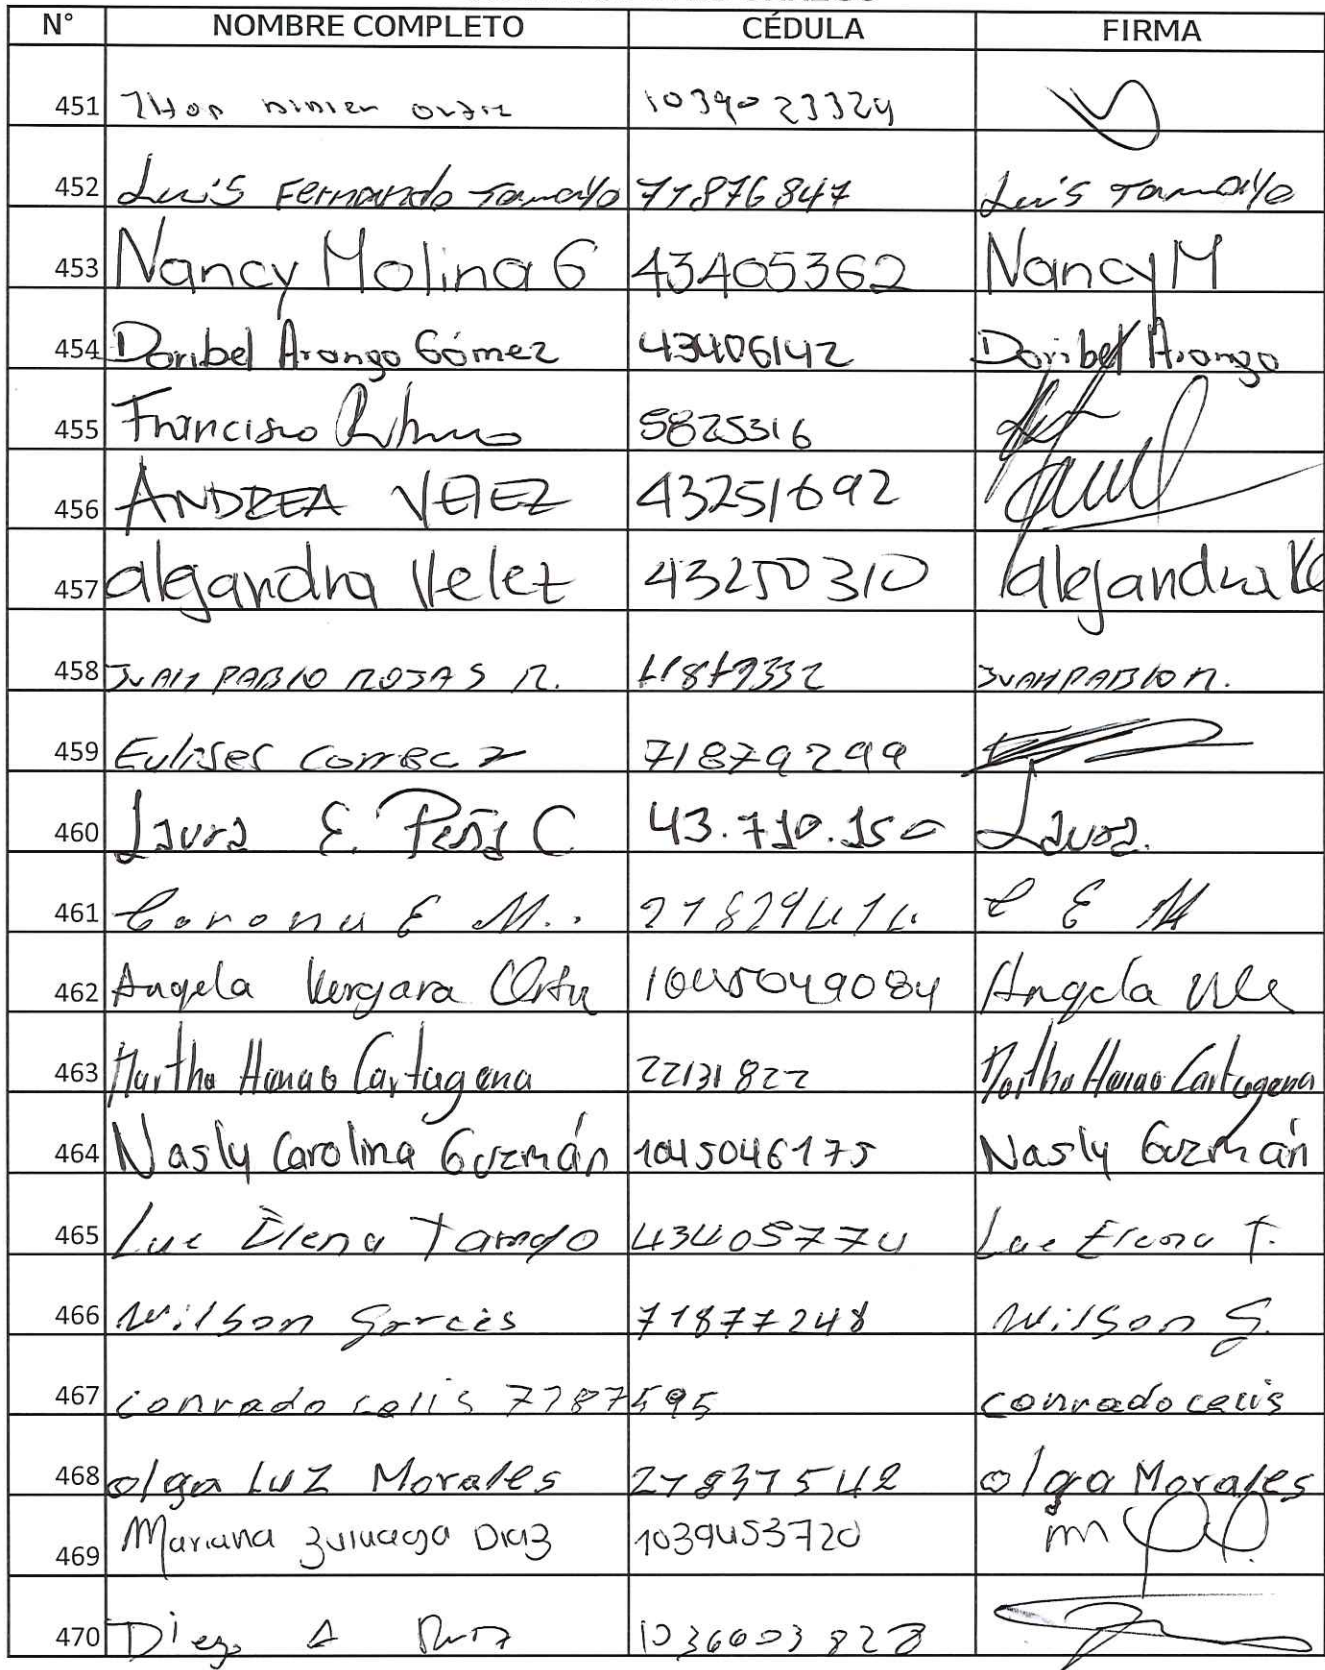 N° NOMBRE COMPLETO CÉDULA FIRMA
451 1039023324
452 Luis Fernando Tamayo 71876847 Luis Tamayo
453 Nancy Molina G 43405362 Nancy M
454 Doribel Arango Gómez 43406142 Doribel Arango
455 Francisco 5825316
456 ANDREA VELEZ 43251692
457 alejandra Velez 43250310 alejandra Ve
458 JUAN PABLO ROJAS R. JUAN PABLO R.
459 Euliser Correa 71879299
460 Laura E. Peña C 43.710.150 Laura.
461 E M. C E M
462 Angela Vergara 1045049084 Angela
463 Martha Henao Cartagena 22131822 Martha Henao Cartagena
464 Nasly Carolina Guzmán 1045046175 Nasly Guzmán
465 Luz Elena Tamayo 43405774 Luz Elena T.
466 Wilson Garcés 71877248 Wilson G.
467 conrado celis 7787595 conrado celis
468 olga LUZ Morales 27837542 olga Morales
469 Mariana Zuluaga Diaz 1039453720
470 Diego A Ruiz 1036603828